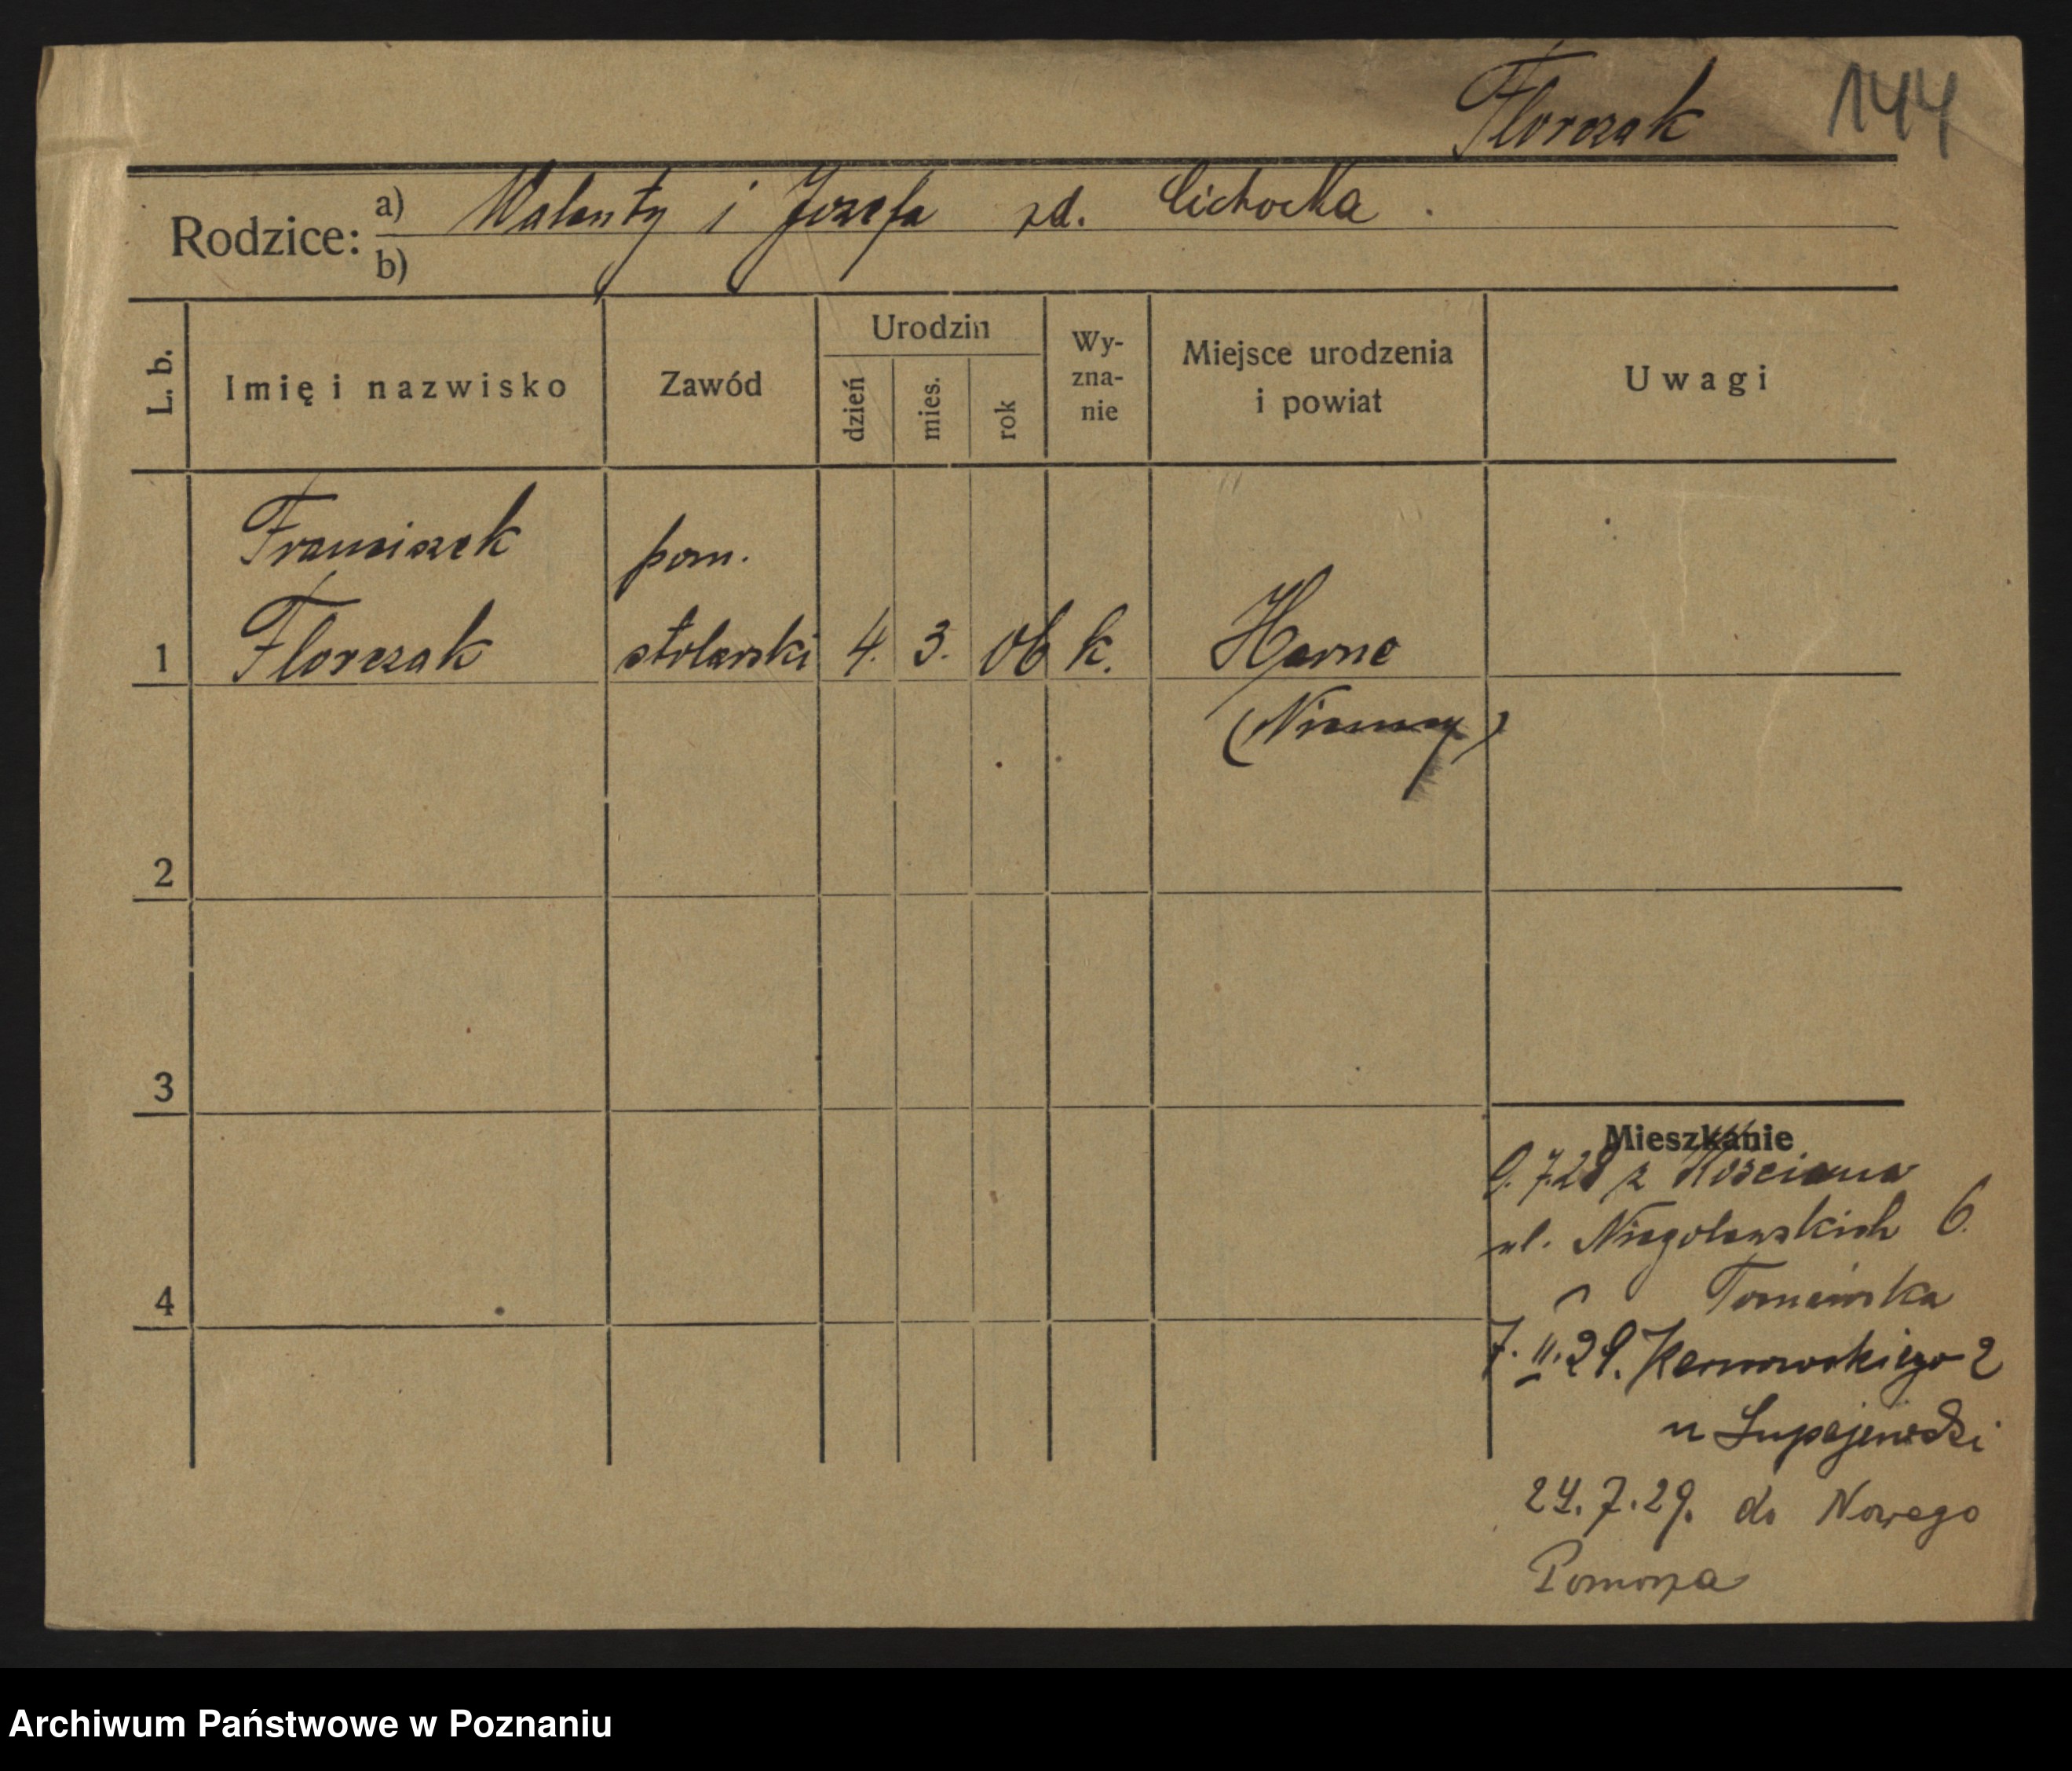 Florczak 144
Rodzice: a) Walenty i Józefa zd. Cichocka.
b)
L. b. Imię i nazwisko Zawód Urodzin dzień mies. rok Wy-zna-nie Miejsce urodzenia i powiat Uwagi
Franciszek pom.
1 Florczak stolarski 4. 3. 06 k. Herne
(Niemcy)
2
3
4
Mieszkanie
9.7.28 z Kościana
ul. Niegolewskich 6.
7.II.29. 2
u
24.7.29. do Nowego
Archiwum Państwowe w Poznaniu